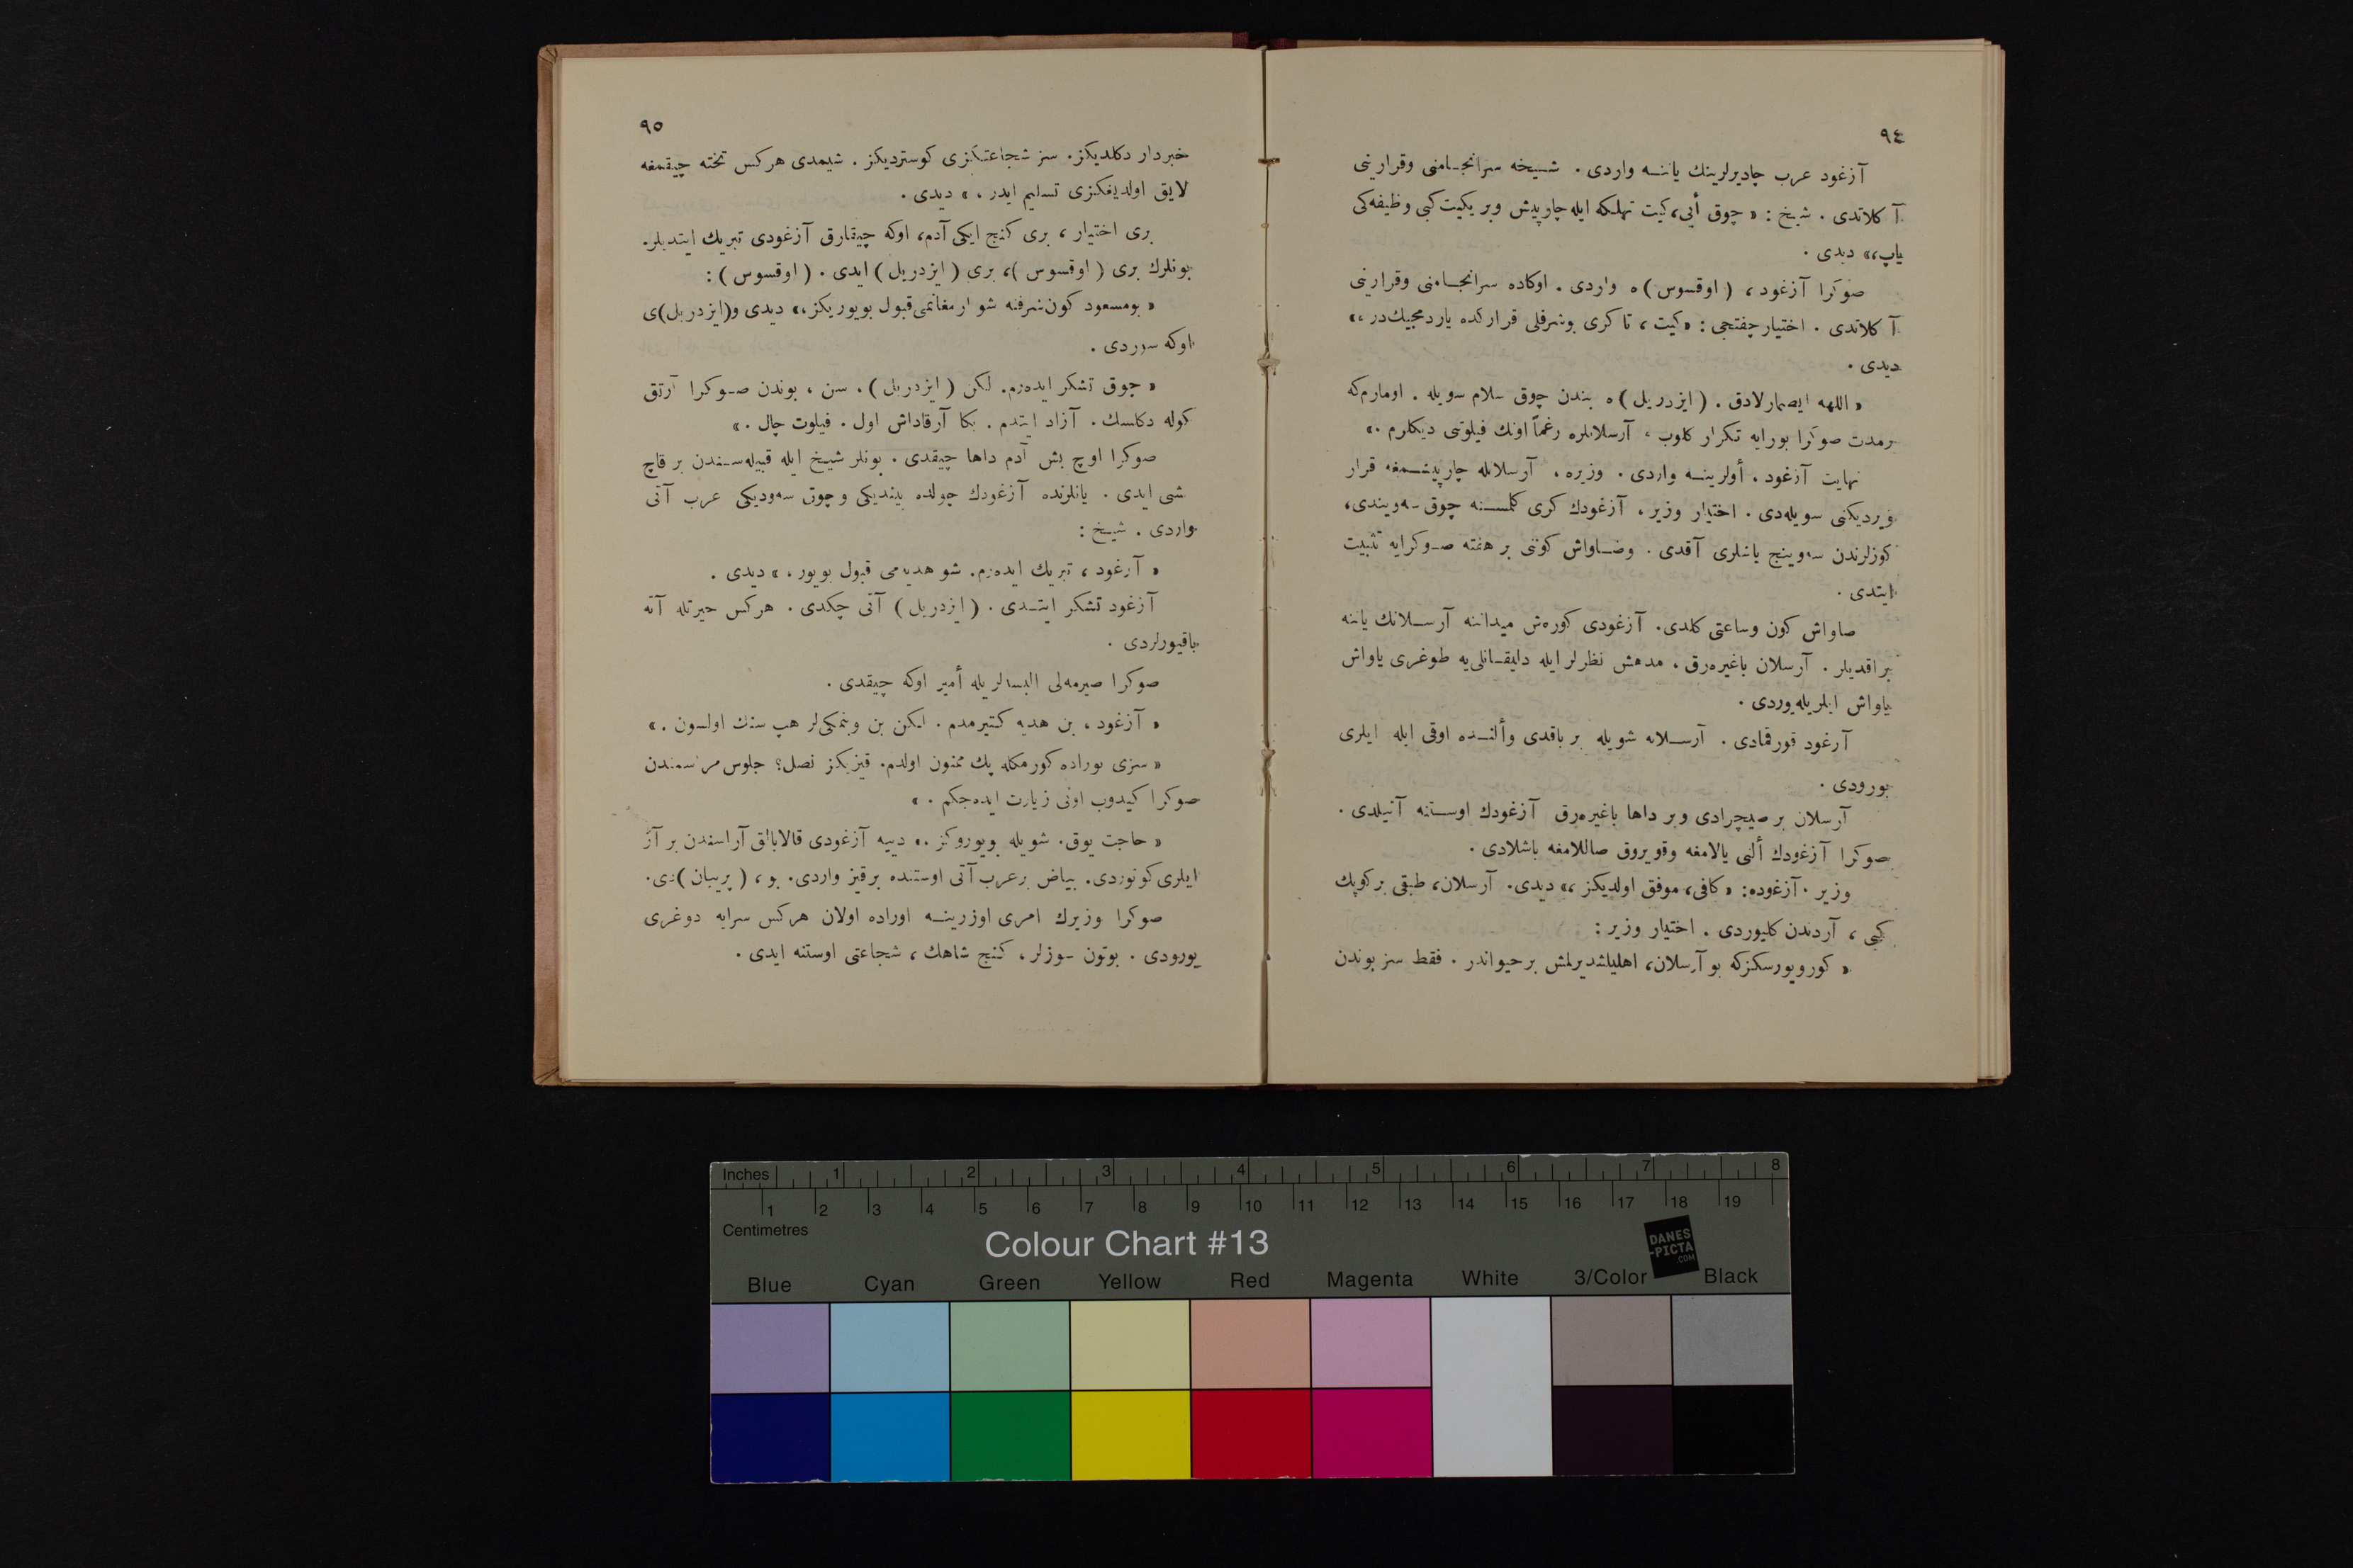 ٩٤
آزغود عرب چادیرلرینك یاننـه واردی . شـیخه سرانجـامنی وقرارینی
آ كلاتدی . شیخ : « چوق أیی، كیت تهلكه ایله چارپیش وبر یكیت كبی وظیفه‌كی
یاپ،» دیدی .
صوكرا آزغود ، ( اوقسوس ) ه واردی . اوكاده سرانجـامنی وقرارینی
آ كلاتدی . اختیار چفتجی : « كیت ، تا كری بوشرفلی قراركده یاردمجیك‌در ،»
دیدی .
« اللهه ایصمارلادق . ( ایزدریل ) ه بندن چوق سلام سویله . اومارم‌كه
برمدت صوكرا بورایه تكرار كلوب ، آرسلانلره رغماً اونك فیلوتنی دیكلرم .»
نهایت آزغود ، أولرینـه واردی . وزیره ، آرسلانله چارپیشـمغه قرار
ویردیكنی سویله‌دی . اختیار وزیر ، آزغودك كری كلمسـنه چوق سه‌ویندی،
كوزلرندن سه‌وینج یاشلری آقدی . وضـاواش كوننی بر هفته صـوكرایه تثبیت
ایتدی .
صاواش كون وساعتی كلدی. آزغودی كوره‌ش میداننه آرسـلانك یاننه
براقدیلر . آرسلان باغیره‌رق ، مدهش نظرلر ایله دلیقـانلی‌یه طوغری یاواش
یاواش ایلریله‌یوردی .
آزغود قورقمادی . آرسـلانه شویله بر باقدی وألنـده اوقی ایله ایلری
یورودی .
آرسلان بر صیچرادی وبر داها باغیره‌رق آزغودك اوسـتنه آتیلدی .
صوكرا آزغودك ألنی یالامغه وقویروق صاللامغه باشلادی .
وزیر . آزغوده: « كافی، موفق اولدیكز ،» دیدی. آرسلان، طبقی بركوپك
كبی ، آردندن كلیوردی . اختیار وزیر :
« كورویورسكزكه بو آرسلان، اهلیلشدیرلمش برحیواندر . فقط سز بوندن
٩٥
خبردار دكلدیكز. سز شجاعتكزی كوستردیكز . شیمدی هركس تخته چیقمغه
لایق اولدیغكزی تسلیم ایدر ، » دیدی .
بری اختیار ، بری كنج ایكی آدم، اوكه چیقارق آزغودی تبریك ایتدیلر.
بونلرك بری ( اوقسوس )، بری ( ایزدریل ) ایدی . ( اوقسوس ) :
« بومسعود كون‌شرفنه شو ارمغانمی‌قبول بویوریكز،» دیدی و(ایزدریل)ی
اوكه سوردی .
« چوق تشكر ایده‌رم. لكن ( ایزدریل ) ، سن ، بوندن صـوكرا آرتق
كوله دكلسك . آزاد ایتدم . بكا آرقاداش اول . فیلوت چال . »
صوكرا اوچ بش آدم داها چیقدی . بونلر شیـخ ایله قبیله‌سـندن بر قاچ
شی ایدی . یانلرنده آزغودك چولده بیندیكی وچوق سه‌ودیكی عرب آتی
واردی . شیـخ :
« آزغود ، تبریك ایده‌رم. شو هدیه‌می قبول بویور ، » دیدی .
آزغود تشكر ایتـدی . ( ایزدریل ) آتی چكدی . هركس حیرتله آته
باقیورلردی .
صوكرا صیرمه‌لی البسه‌لریله أمیر اوكه چیقدی .
« آزغود ، بن هدیه كتیرمدم . لكن بن وبنمكی‌لر هپ سنك اولسون . »
« سزی بوراده كورمكله پك ممنون اولدم. قیزیكز نصل؟ جلوس مراسمندن
صوكرا كیدوب اونی زیارت ایده‌جكم . »
« حاجت یوق. شویله بویوروكز .» دییه آزغودی قالابالق آراسندن بر آز
ایلری كوتوردی. بیاض برعرب آتی اوستنده برقیز واردی. بو ، ( پریبان )دی.
صوكرا وزیرك امری اوزرینـه اوراده اولان هركس سرایه دوغری
یورودی . بوتون سوزلر ، كنج شاهك ، شجاعتی اوستنه ایدی .
Inches 1 2 3 4 5 6 7 8
1 2 3 4 5 6 7 8 9 10 11 12 13 14 15 16 17 18 19
Centimetres
Colour Chart #13
DANES
-PICTA
.COM
Blue Cyan Green Yellow Red Magenta White 3/Color Black